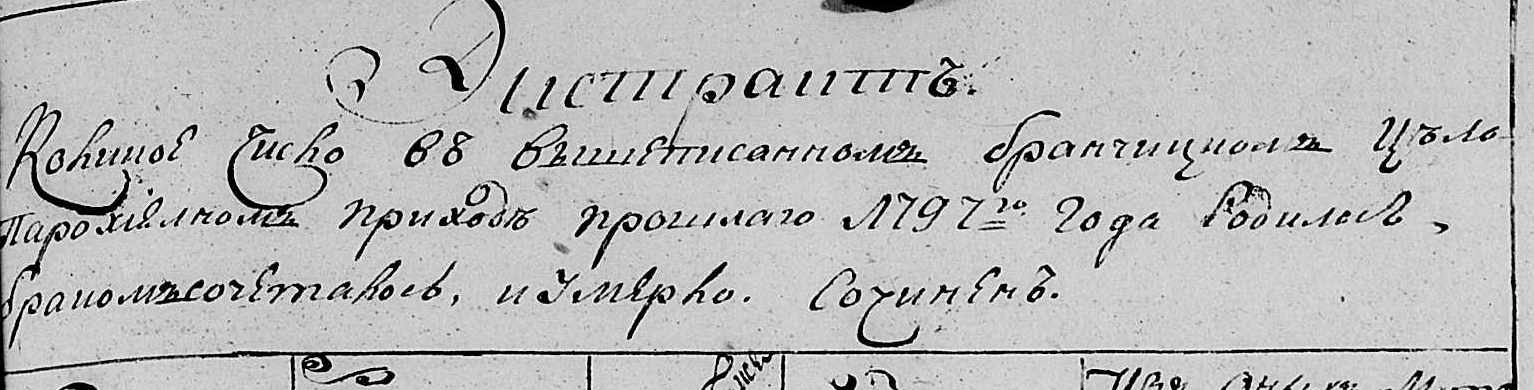 Экстрактъ.
Коликое Число въ вышеписанномъ бранчицкомъ Цѣло
парохіялномъ приходѣ прошлаго 1797го Года Родилося,
бракомъ сочеталось, и Умерло. Сочиненъ.
Число